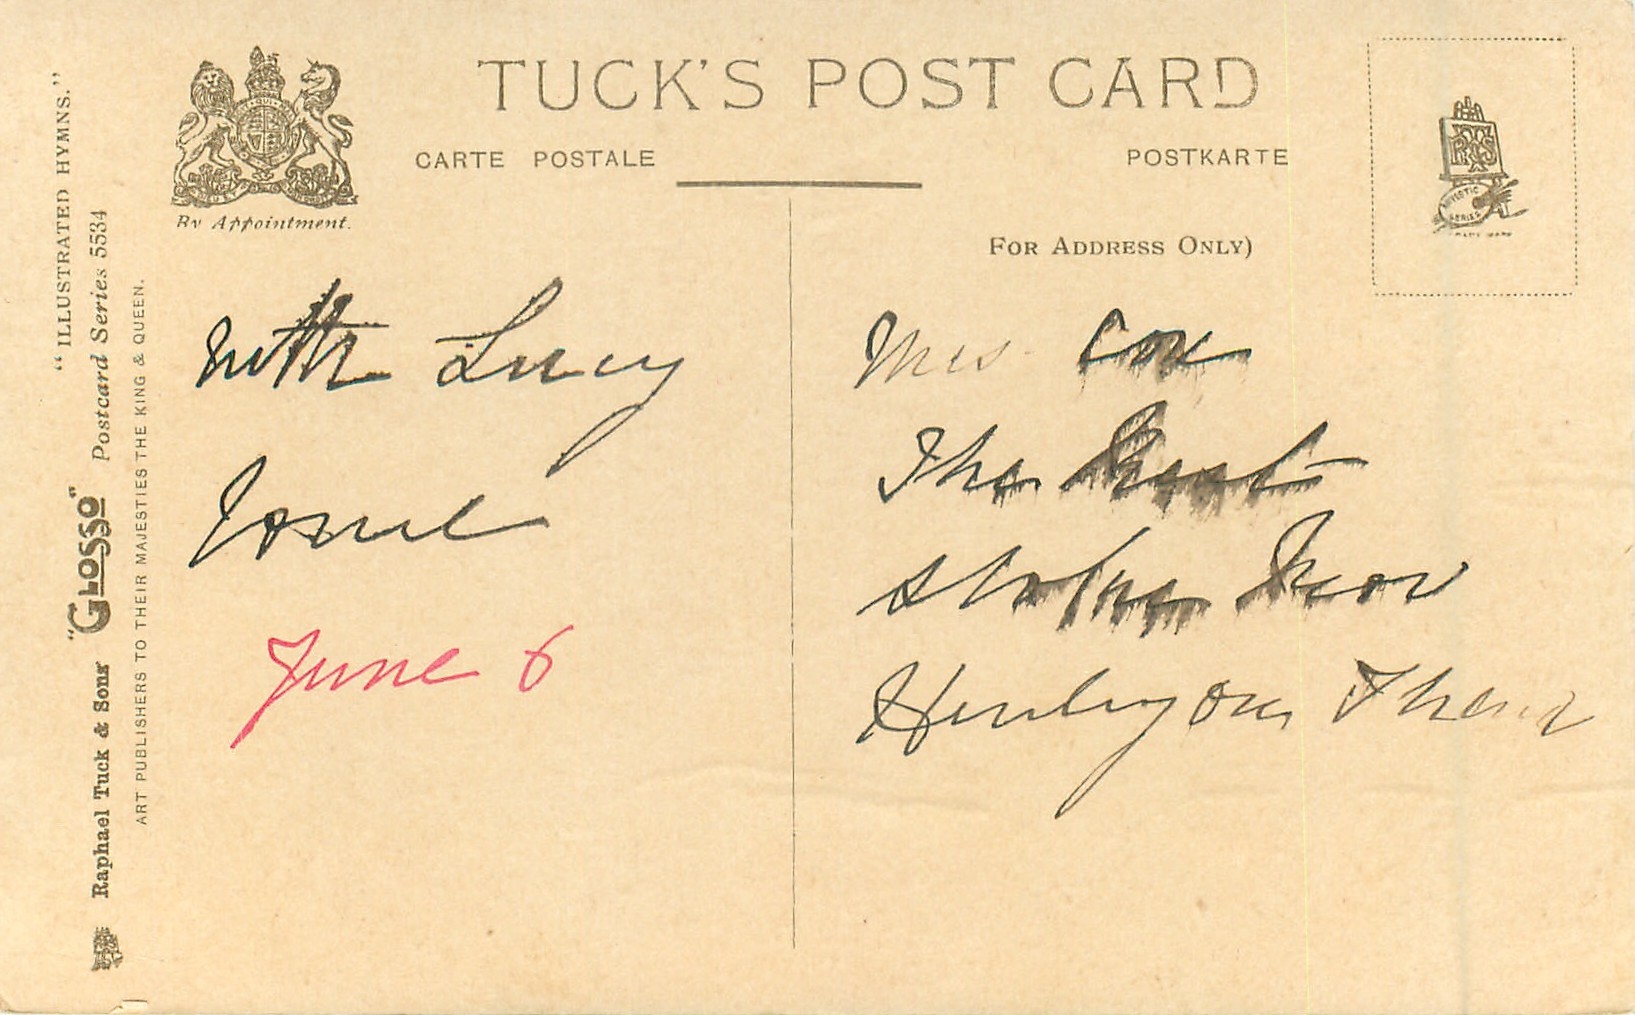 TUCK'S POST CARD
CARTE POSTALE
POSTKARTE
By Appointment.
FOR ADDRESS ONLY)
RTS
ARTISTIC
SERIES
"ILLUSTRATED HYMNS."
Raphael Tuck & Sons' "GLOSSO" Postcard Series 5534
ART PUBLISHERS TO THEIR MAJESTIES THE KING & QUEEN.
with Lucy
June 6
Mrs Cox
The
Henley on Thems